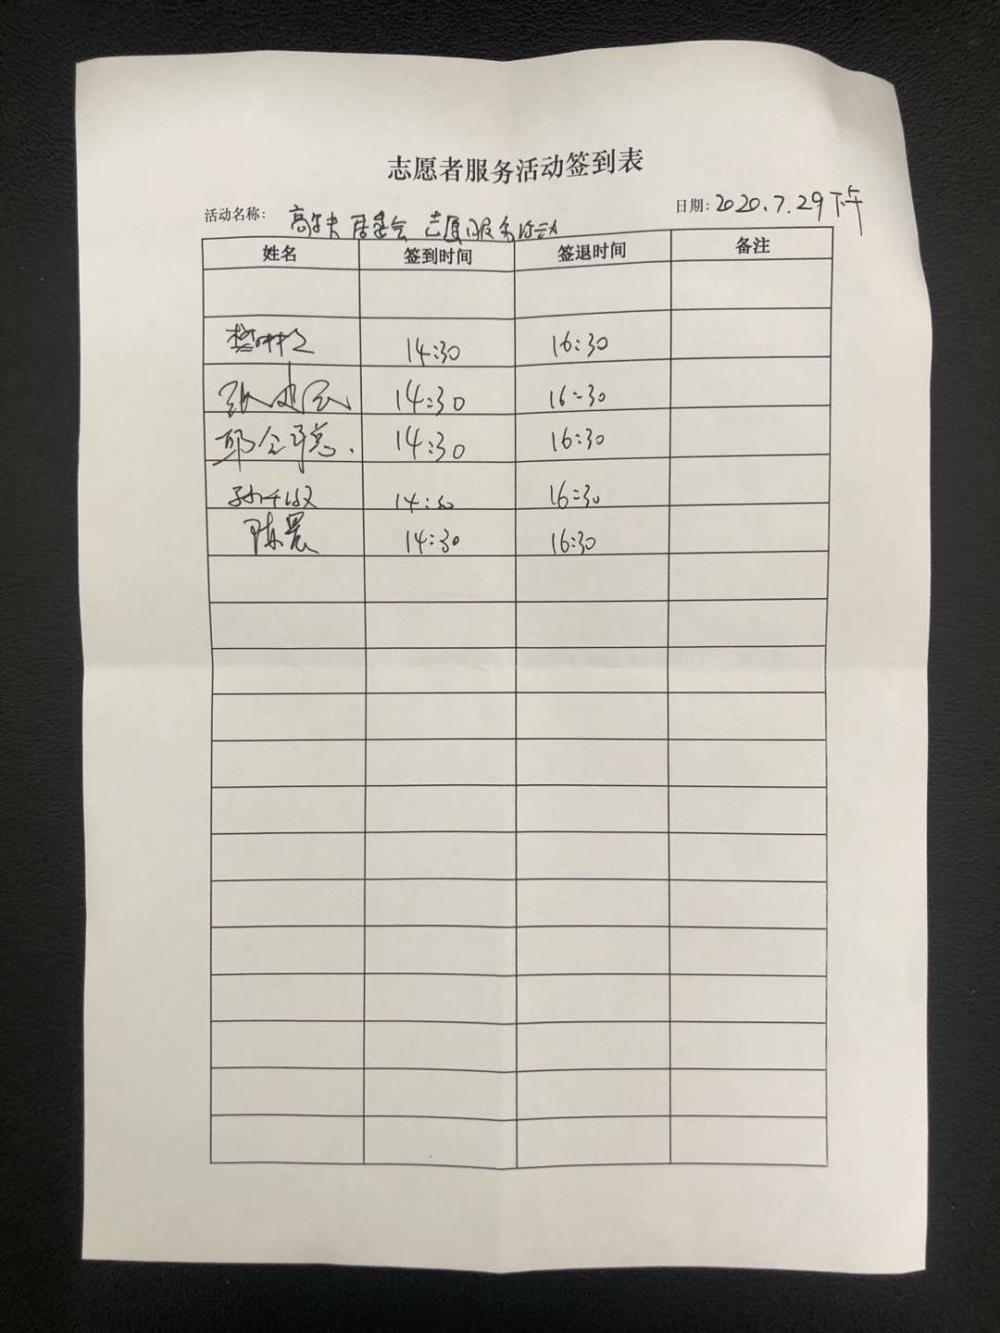 志愿者服务活动签到表
活动名称: 高尔夫居委会 志愿服务活动 日期: 2020.7.29下午
姓名 签到时间 签退时间 备注
14:30 16:30
张 14:30 16:30
14:30 16:30
孙 14:30 16:30
陈晨 14:30 16:30